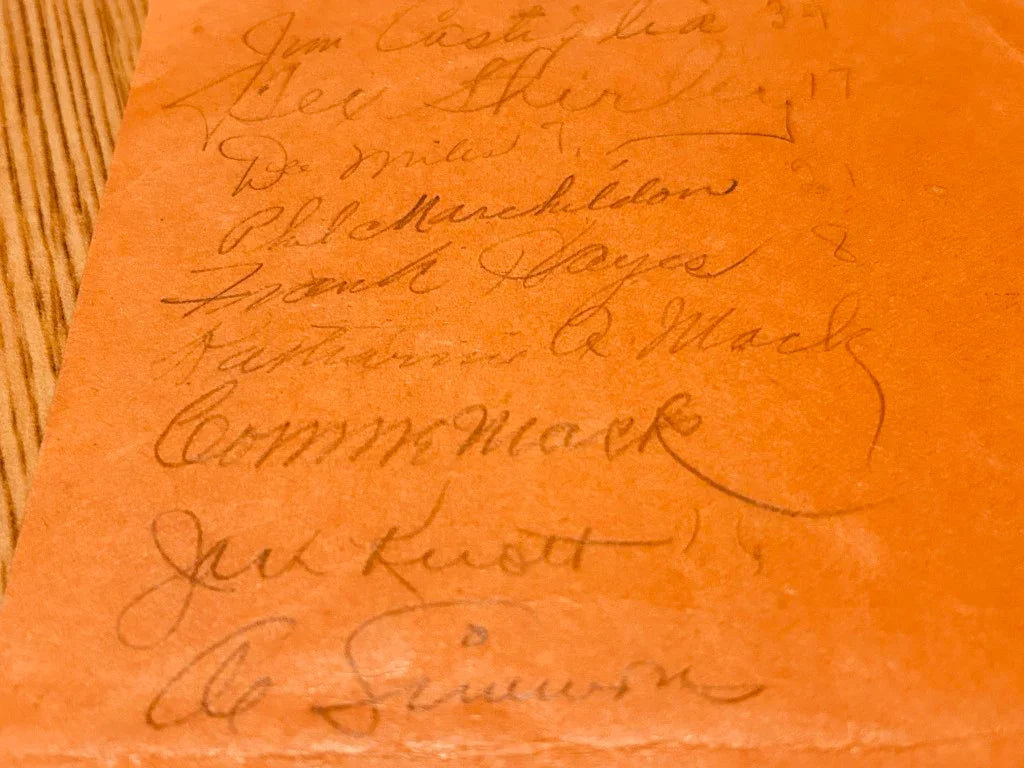 Jim Castiglia 34
Tex Shirley 17
Dee Miles 7
Phil Marchildon 21
Frank Hayes 8
Katharine A Mack
Connie Mack
Jack Knott
Al Simmons